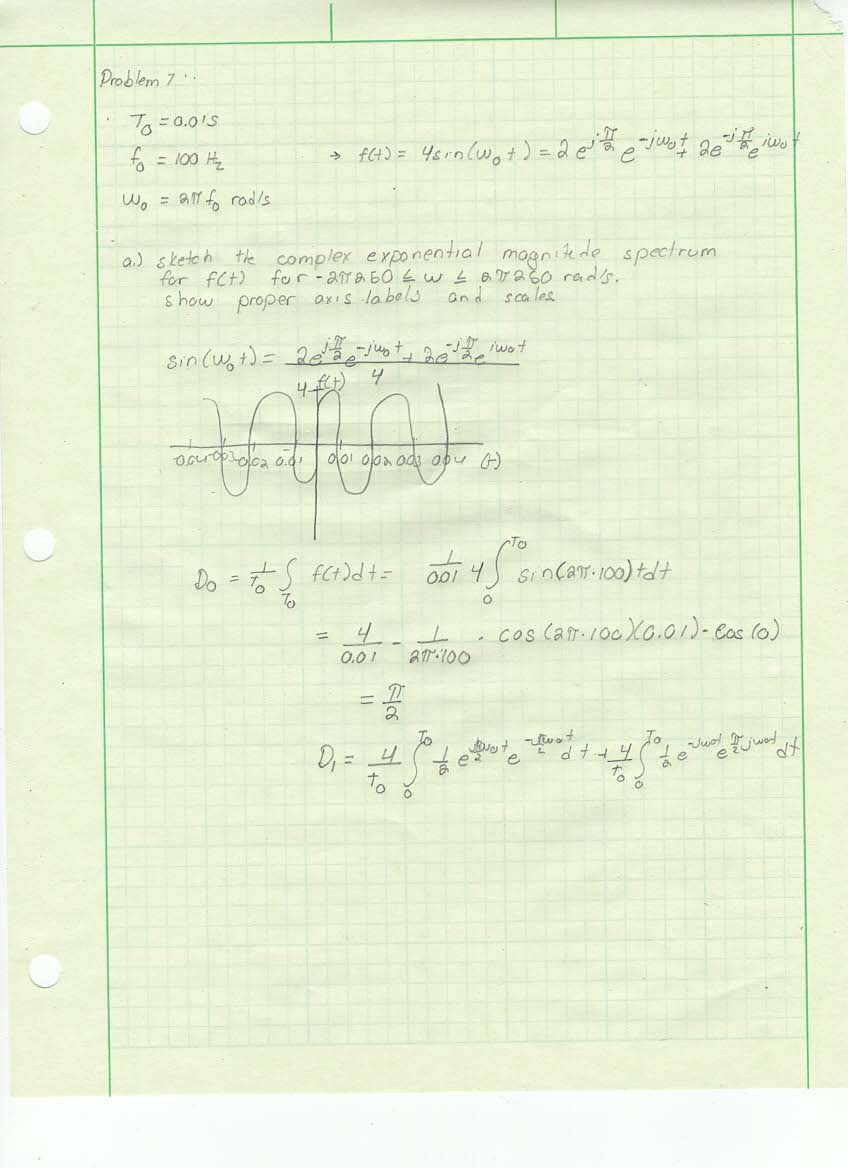 Problem 7
T₀ = 0.01s
f₀ = 100 Hz → f(t) = 4sin(ω₀t) = 2e^{jπ/2} e^{-jω₀t} + 2e^{-jπ/2} e^{jω₀t}
ω₀ = 2πf₀ rad/s
a.) sketch the complex exponential magnitude spectrum
for f(t) for -2π250 ≤ ω ≤ 2π250 rad/s.
show proper axis labels and scales
sin(ω₀t) = (2e^{jπ/2} e^{-jω₀t} + 2e^{-jπ/2} e^{jω₀t}) / 4
4 f(t)
0.04 0.03 0.02 0.01 0.01 0.02 0.03 0.04 (t)
D₀ = 1/T₀ ∫_{T₀} f(t)dt = 1/0.01 4 ∫₀^{T₀} sin(2π·100)tdt
= 4/0.01 - 1/2π·100 · cos(2π·100)(0.01) - cos(0)
= π/2
D₁ = 4/T₀ ∫₀^{T₀} 1/2 e^{π/2 jω₀t} e^{-jπ/2 ω₀t} dt + 4/T₀ ∫₀^{T₀} 1/2 e^{-jω₀t} e^{π/2 jω₀t} dt